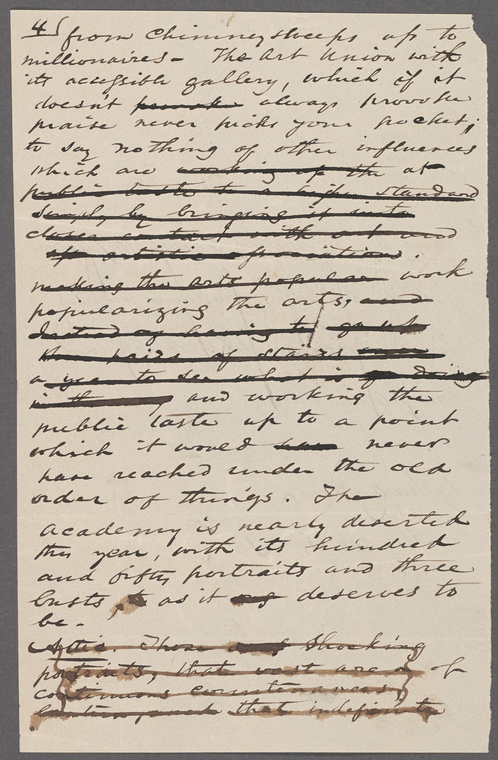 4 from chimneysweeps up to
millionaires - The Art Union with
its accessible gallery, which if it
doesn't always provoke
praise never picks your pocket;
to say nothing of other influences
which are working up the at
public taste to a higher standard
simply by bringing it into
closer contact with art and
artistic
making the arts popular work
popularizing the arts; and
Instead of having to go up
pairs of stairs
a year to see what is doing
in the and working the
public taste up to a point
which it would never
have reached under the old
order of things. The
academy is nearly deserted
this year, with its hundred
and fifty portraits and three
busts, as it deserves to
be.-
Those shocking
portraits, that vast area of
countenances,
that indefinite